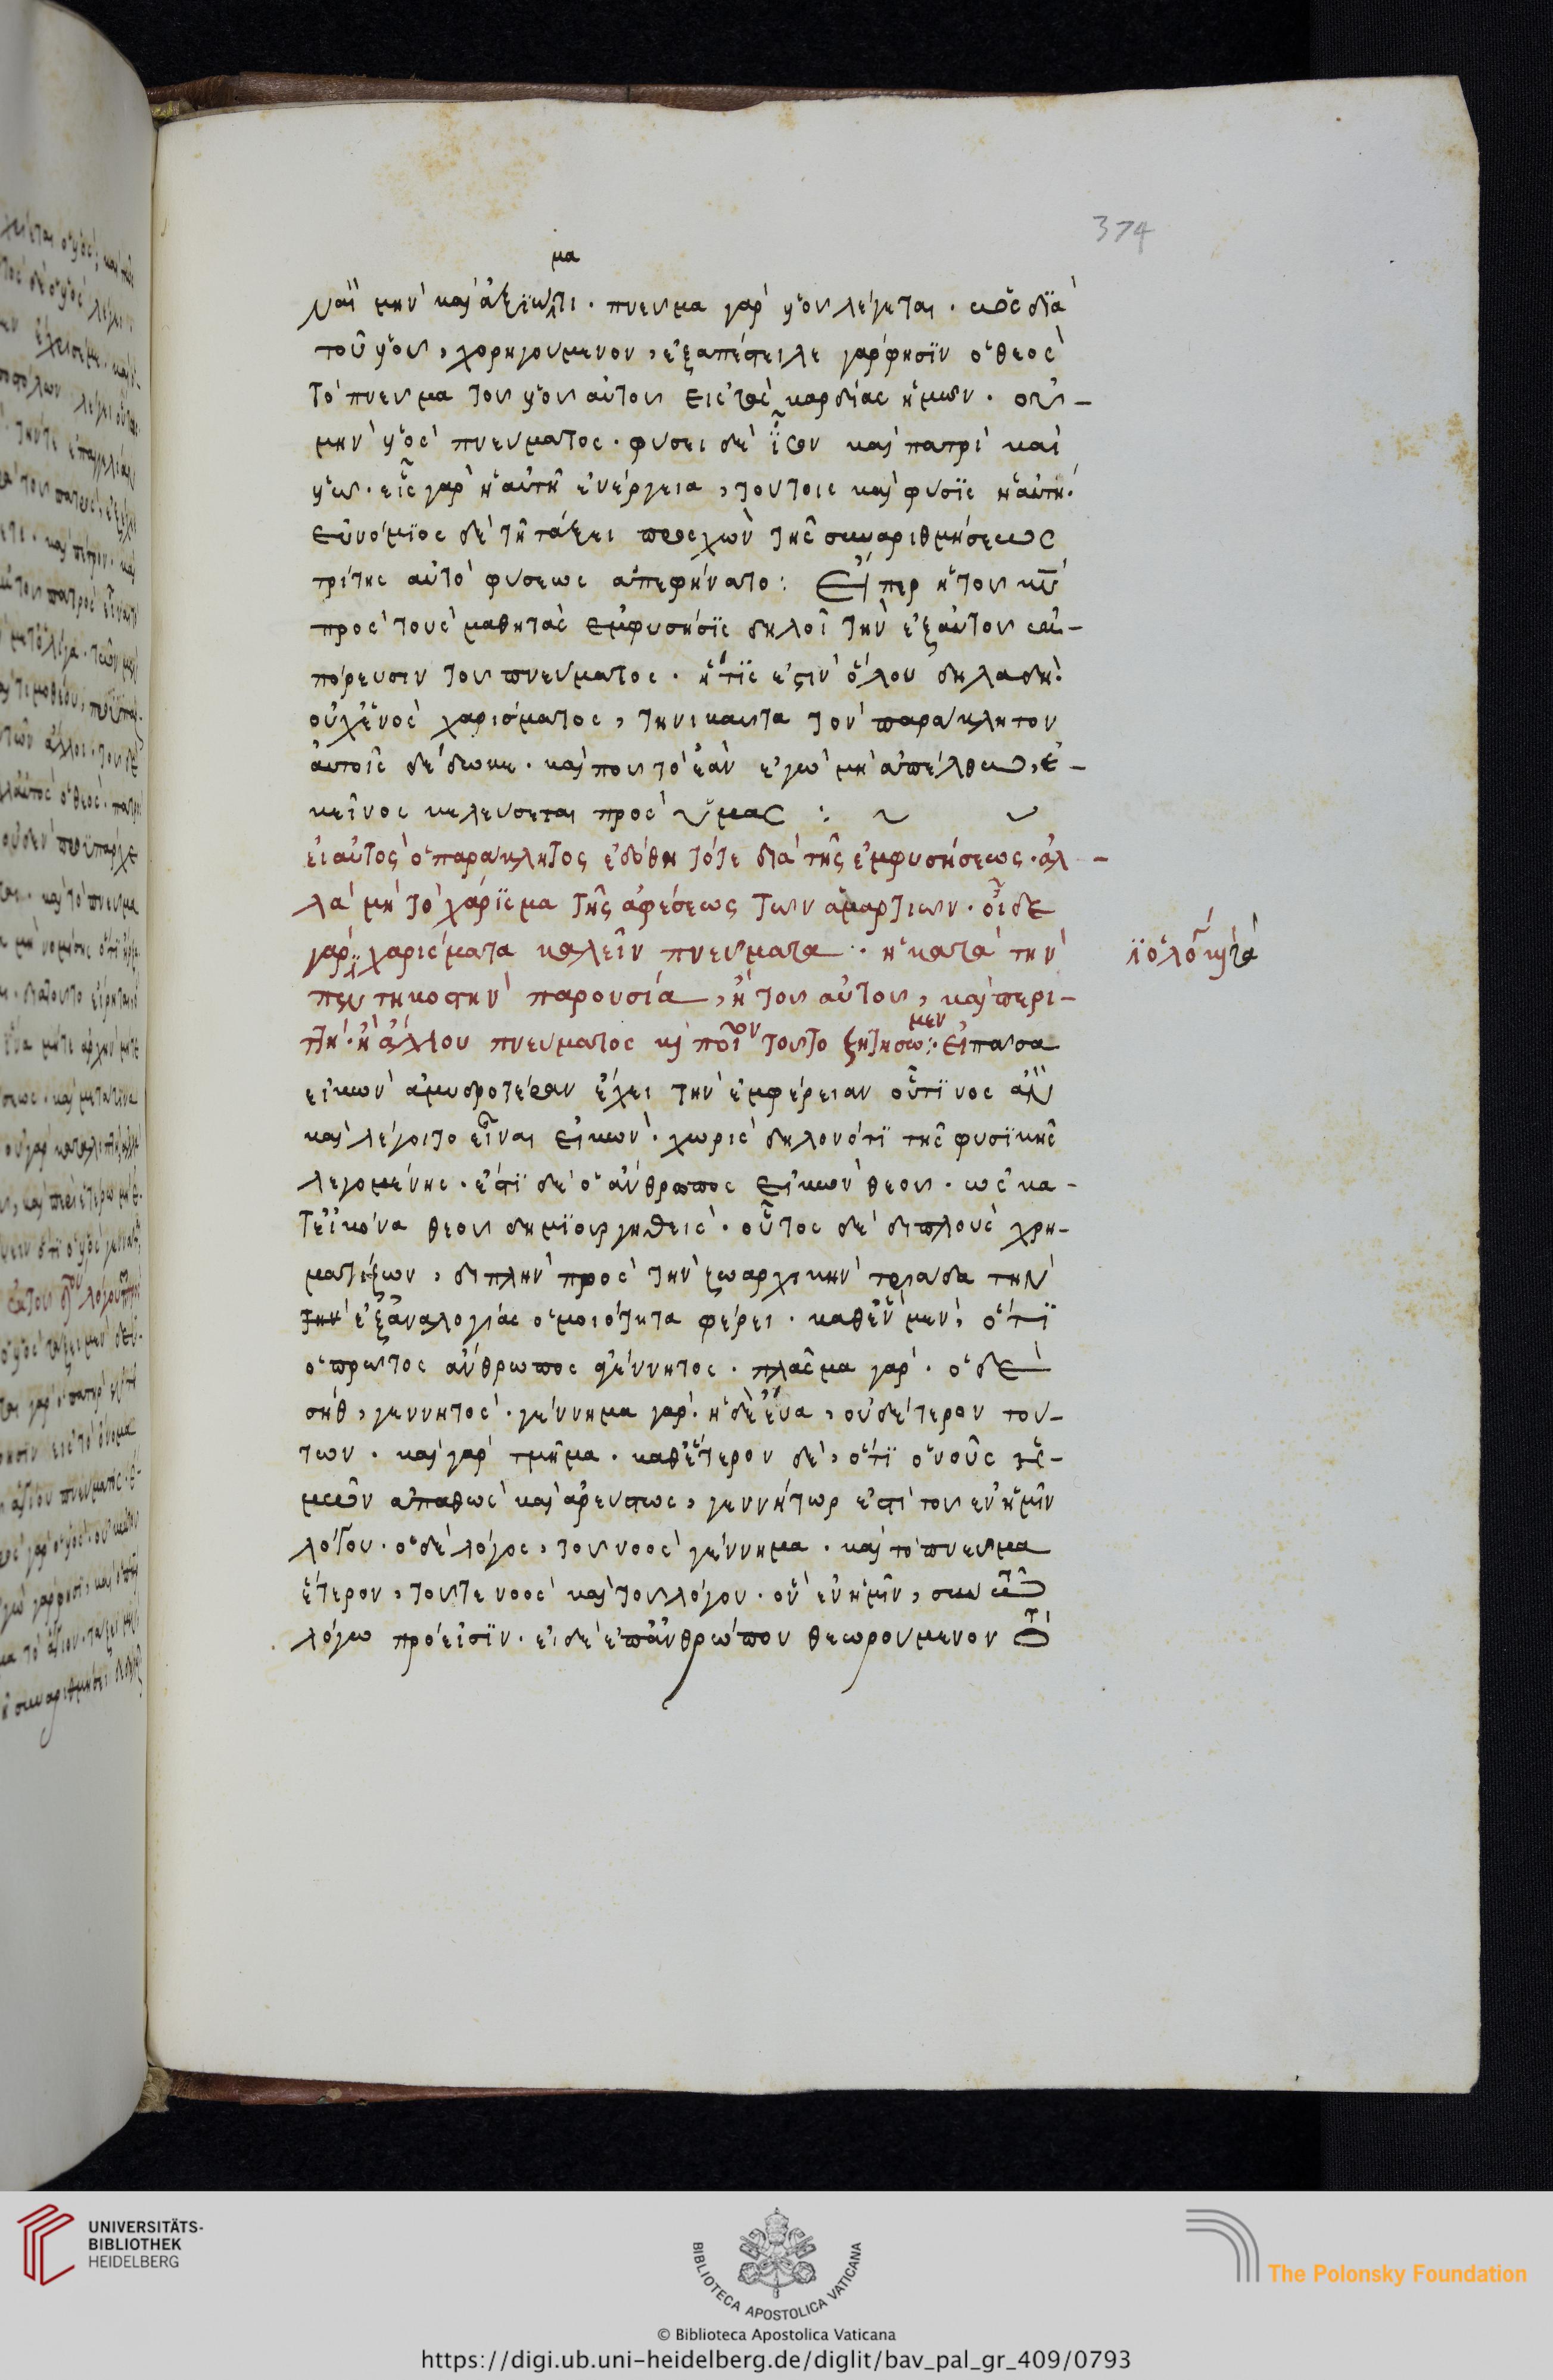 374
μα
ναὶ μὴν καὶ ἀξιώτι. πνεῦμα γὰρ υἱοῦ λέγεται. ὡς διὰ
τοῦ υἱοῦ, χορηγούμενον, ἐξαπέστειλε γάρ φησϊν ὁ θεὸς
τὸ πνεῦμα τοῦ υἱοῦ αὐτοῦ εἰς τὰς καρδίας ἡμῶν. οὐ-
μὴν υἱὸς πνεύματος. φύσει δὲ ἴσον καὶ πατρὶ καὶ
υἱῶ. εἷς γὰρ ἡ αὐτὴ ἐνέργεια, τούτοις καὶ φύσϊς ἡ αὐτή.
εὐνόμϊος δὲ τῆ τάξει προσχὼν τῆς συναριθμήσεως
τρίτης αὐτὸ φύσεως ἀπεφήνατο: Εἴπερ ἡ τοῦ κῦ
πρὸς τοὺς μαθητὰς ἐμφυσήσϊς δηλοῖ τὴν ἐξ αὐτοῦ ἐκ-
πόρευσιν τοῦ πνεύματος. ἥτϊς ἐστιν ὅλου δηλαδή.
οὐχ ἑνὸς χαρίσματος, τηνικαῦτα τὸν παράκλητον
αὐτοῖς δέδωκε. καὶ ποῦ τὸ ἐὰν ἐγὼ μὴ ἀπέλθω, ἐ-
κεῖνος κελεύσεται πρὸς ὑμᾶς :
εἰ αὐτὸς ὁ παράκλητος ἐδόθη τότε διὰ τῆς ἐμφυσήσεως. ἀλ-
λὰ μὴ τὸ χάρϊσμα τῆς ἀφέσεως τῶν ἁμαρτιῶν. οἶδε
γὰρ χαρίσματα καλεῖν πνεύματα. ἡ κατὰ τὴν
πεντηκοστὴν παρουσία, ἢ τοῦ αὐτοῦ, καὶ περι-
τὴ. ἢ ἄλλου πνεύματος κὶ ποῖον τοῦτο ζητήσωμεν : Εἰ πᾶσα
εἰκὼν ἀμυδροτέραν ἔχει τὴν ἐμφέρειαν οὗτϊνος ἂν
καὶ λέγοιτο εἶναι εἰκὼν. χωρὶς δηλονότϊ τῆς φυσϊκῆς
λεγομένης. ἔστϊ δὲ ὁ ἄνθρωπος εἰκὼν θεοῦ. ὡς κα-
τεἰκόνα θεοῦ δημϊουργηθεὶς. οὗτος δὲ διπλοῦς χρη-
ματίζων, διπλὴν πρὸς τὴν ζωαρχικὴν τριάδα τὴν
τὴν ἐξ ἀναλογίας ὁμοιότητα φέρει. καθ ἓν μὲν, ὅτϊ
ὁ πρῶτος ἄνθρωπος ἀγέννητος. πλάσμα γὰρ. ὁ δὲ
σὴθ, γεννητὸς. γέννημα γὰρ. ἡ δὲ εὔα, οὐδέτερον τού-
των. καὶ γὰρ τμῆμα. καθ ἕτερον δὲ, ὅτϊ ὁ νοῦς ἡ-
μῶν ἀπαθῶς καὶ ἀρεύστως, γεννήτωρ ἐστὶ τοῦ ἐν ἡμῖν
λόγου. ὁ δὲ λόγος, τοῦ νοὸς γέννημα. καὶ τὸ πνεῦμα
ἕτερον, τοῦτε νοὸς καὶ τοῦ λόγου. οὗ ἐν ἡμῖν, σὺν τῶ
λόγω πρόεισϊν. εἰ δὲ ἐπ ἀνθρώπου θεωρούμενον τὸ
UNIVERSITÄTS-
BIBLIOTHEK
HEIDELBERG
BIBLIOTECA APOSTOLICA VATICANA
The Polonsky Foundation
© Biblioteca Apostolica Vaticana
https://digi.ub.uni-heidelberg.de/diglit/bav_pal_gr_409/0793